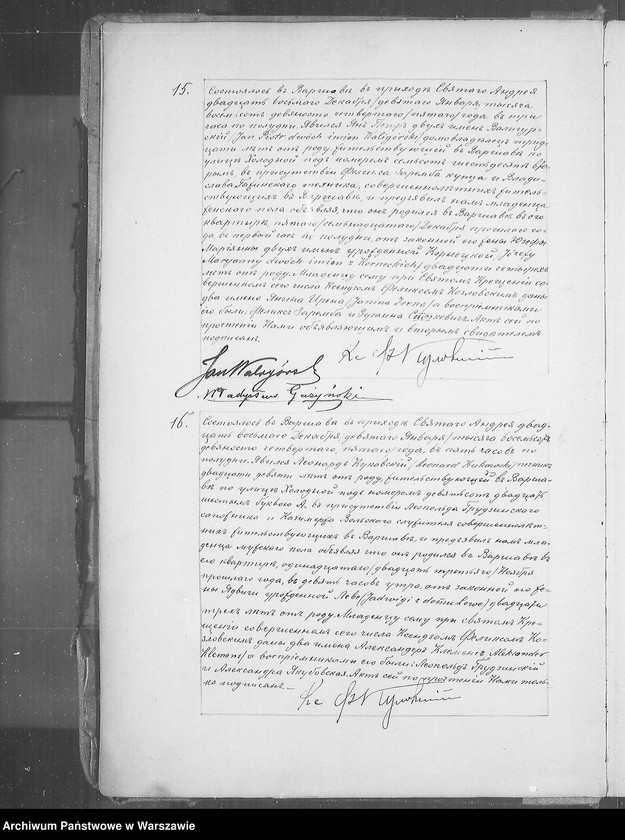 15.
Состоялось въ Варшавѣ въ приходѣ Святаго Андрея
двадцать восьмаго Декабря /девятаго Января/ тысяча
восемьсотъ девяносто четвертаго /пятаго/ года въ три
часа по полудни. Явился Янъ Петръ двухъ именъ Валигур-
скій /Jan Piotr dwóch imion Waligórski/ домовладѣлецъ трид-
цати лѣтъ отъ роду, жительствующій въ Варшавѣ по
улицѣ Холодной подъ номеромъ семьсотъ шестьдесятъ вто-
рымъ въ присутствіи Феликса Заремба купца и Влади-
слава техника, совершеннолѣтнихъ житель-
ствующихъ въ Варшавѣ, и предъявилъ намъ младенца
женскаго пола объявляя, что онъ родился въ Варшавѣ въ его
квартирѣ пятаго /семьнадцатаго/ Декабря прошлаго го-
да въ первомъ часъ по полудни, отъ законной его жены Юзефы
Маріянны двухъ именъ урожденной Корнецкой /Józefy
Maryanny dwóch imion z Korneckich/ двадцати четырехъ
лѣтъ отъ роду. Младенцу сему при Святомъ Крещеніи со-
вершенномъ сего числа Ксендзомъ Феликсомъ Козловскимъ даны
два имена Янина Ирена /Janina Irena/ а воспріемниками
его были: Феликсъ Заремба и Зузанна Актъ сей по
прочтеніи Нами объявляющимъ и вторымъ свидѣтелемъ
подписанъ.
Кс
Jan Waligórski
Władysław
16.
Состоялось въ Варшавѣ въ приходѣ Святаго Андрея двад-
цать восьмаго Декабря /девятаго Января/ тысяча восемьсотъ
девяносто четвертаго /пятаго/ года, въ пять часовъ по
полудни. Явился Леонардъ /Leonard
двадцати девяти лѣтъ отъ роду, жительствующій въ Варша-
вѣ по улицѣ Холодной подъ номеромъ девятьсотъ двадцать
шестымъ буквою А. въ присутствіи Леопольда Грудзинскаго
сапожника и Казимержа Вольскаго служителя совершеннолѣт-
нихъ жительствующихъ въ Варшавѣ, и предъявилъ намъ мла-
денца мужскаго пола объявляя что онъ родился въ Варшавѣ въ
его квартирѣ, одинадцатаго /двадцать третьяго/ Ноября
прошлаго года, въ девять часовъ утра, отъ законной его же-
ны Ядвиги урожденной /Jadwigi z domu двадцати
трехъ лѣтъ отъ роду. Младенцу сему при святомъ Кре-
щеніи совершенномъ сего числа Ксендзомъ Феликсомъ Ко-
зловскимъ даны два имена Александръ Клеменсъ /Aleksander
Klemens/ а воспріемниками его были: Леопольдъ Грудзинскій
и Александра Якубовская. Актъ сей по прочтеніи Нами толь-
ко подписанъ.—
Кс
Archiwum Państwowe w Warszawie